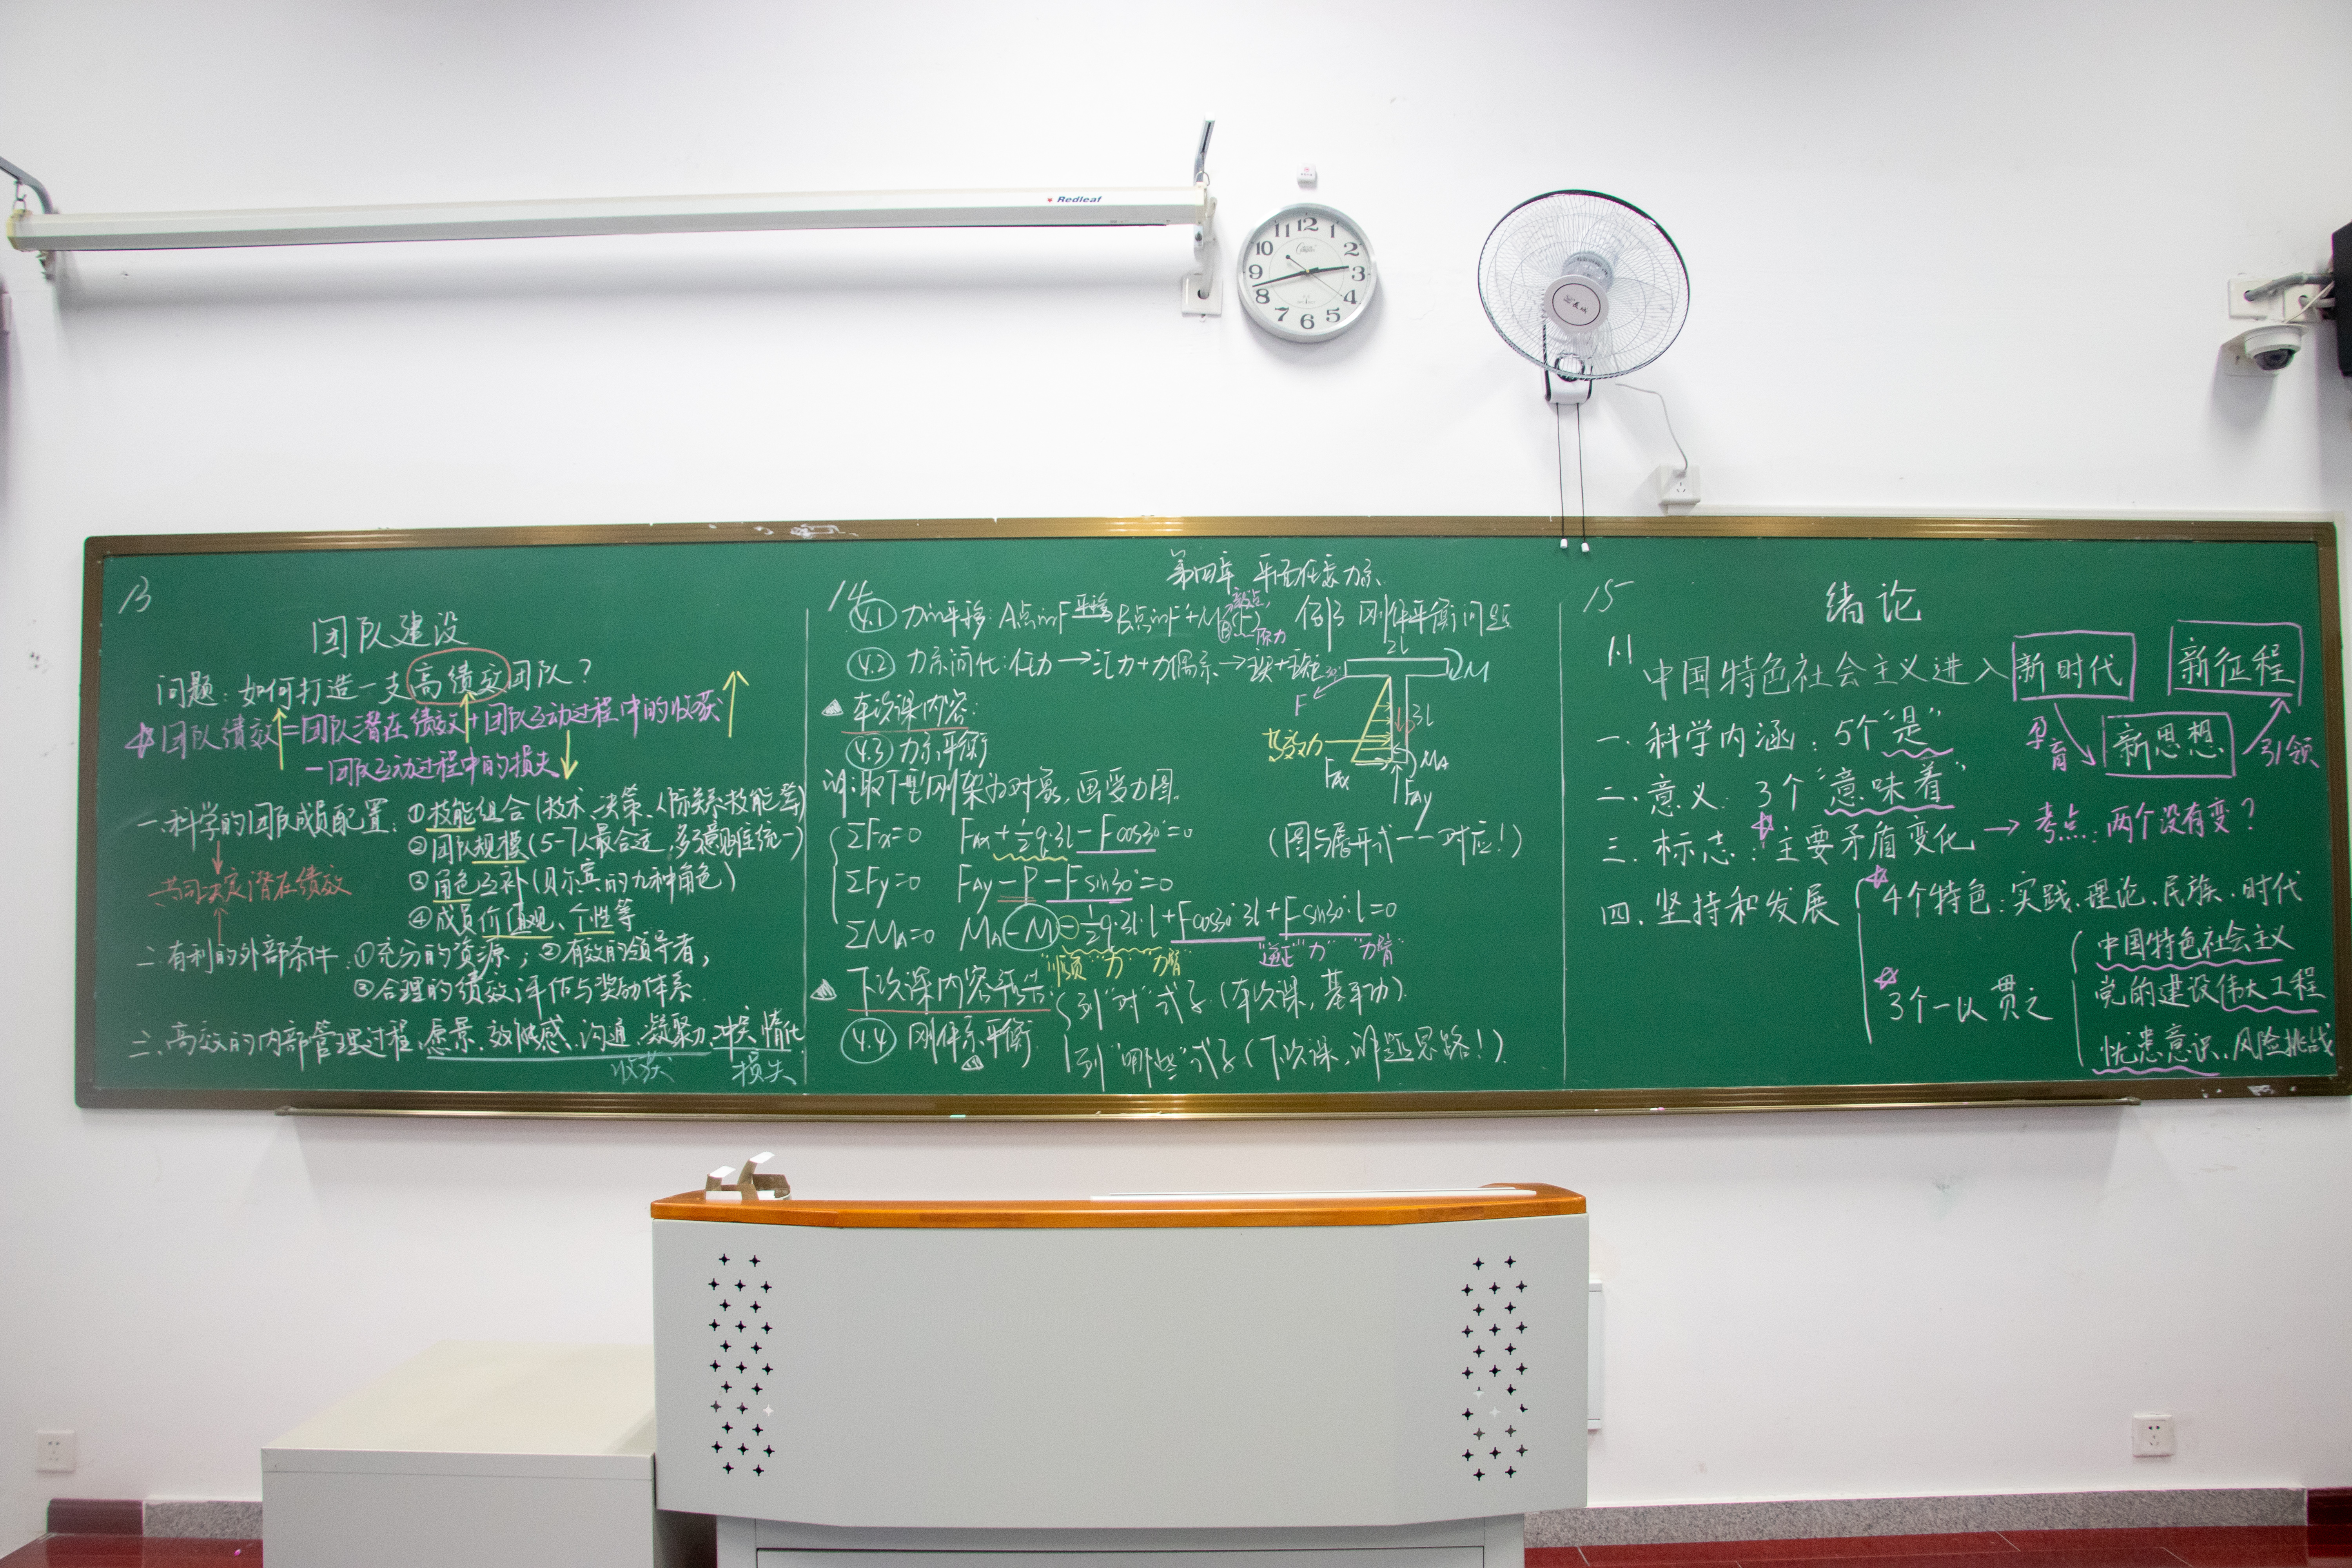 Redleaf
12
1
2
3
4
5
6
7
8
9
10
11
13
团队建设
问题：如何打造一支高绩效团队？
团队绩效=团队潜在绩效+团队互动过程中的收获
-团队互动过程中的损失
一.科学的团队成员配置：①技能组合(技术、决策、人际关系技能等)
②团队规模(5-7人最合适,多了意见难统一)
③角色互补(贝尔宾的九种角色)
④成员价值观、个性等
共同决定潜在绩效
二.有利的外部条件：①充分的资源；②有效的领导者；
③合理的绩效评估与奖励体系.
三.高效的内部管理过程：愿景、效能感、沟通、凝聚力、冲突、惰化
收获 损失
14
第四章 平面任意力系
4.1 力的平移：A点的F 平移 B点的F+M_B(F) 例3 刚体平衡问题
原力
4.2 力系简化：任力→汇力+力偶系→主矢+主矩
本次课内容：
4.3 力系平衡
2l
M
30°
F
3l
P
均变力
M_A
F_Ax
F_Ay
解：取T型刚架为对象,画受力图.
ΣFx=0 F_Ax+½q·3l-Fcos30°=0 (图与展开式一一对应！)
ΣFy=0 F_Ay-P-Fsin30°=0
ΣM_A=0 M_A-M-½q·3l·l+Fcos30°·3l+Fsin30°·l=0
"顺负""力" "力臂" "逆正""力" "力臂"
下次课内容预告：列"对"式子(本次课,基本功).
4.4 刚体系平衡 列"哪些"式子(下次课,解题思路！).
15
绪论
1.1
中国特色社会主义进入新时代 新征程
孕育 新思想 引领
一.科学内涵：5个"是"
二.意义：3个"意味着"
三.标志：主要矛盾变化→考点：两个没有变？
四.坚持和发展 4个特色：实践、理论、民族、时代
3个一以贯之
中国特色社会主义
党的建设伟大工程
忧患意识、风险挑战